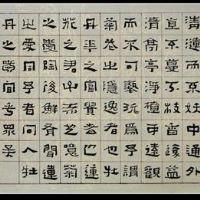 清漣而不妖中通外
直不蔓不枝香遠益
清亭亭淨植可遠觀
而不可褻玩焉予謂
菊花之隱逸者也牡
丹花之富貴者也蓮
花之君子者也噫菊
之愛陶後鮮有聞蓮
之愛同予者何人牡
丹之愛宜乎眾矣